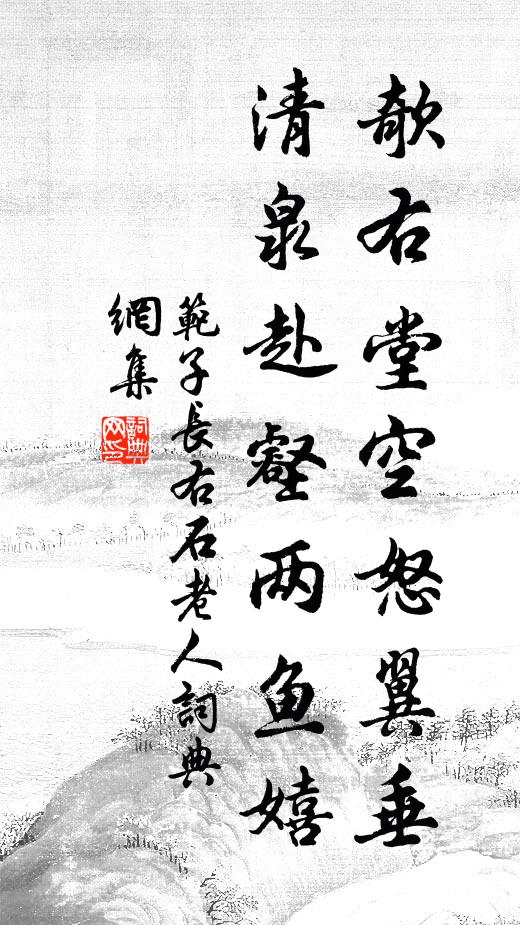 欹右堂空怒翼垂
清泉赴壑两鱼嬉
範子長右石老人詞典
網集
詞典網印